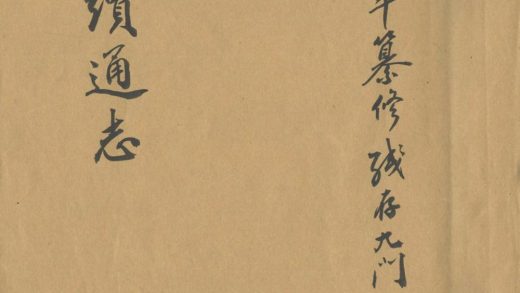 年纂修殘存九門
續通志